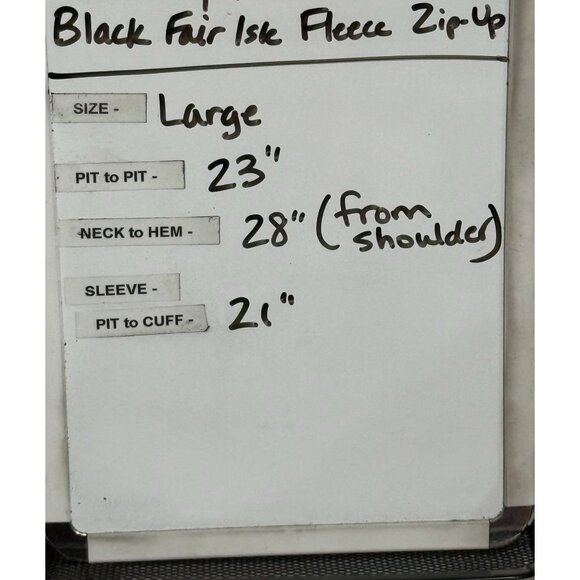 Black Fair Isle Fleece Zip-Up
SIZE - Large
PIT to PIT - 23"
NECK to HEM - 28" (from shoulder)
SLEEVE -
PIT to CUFF - 21"